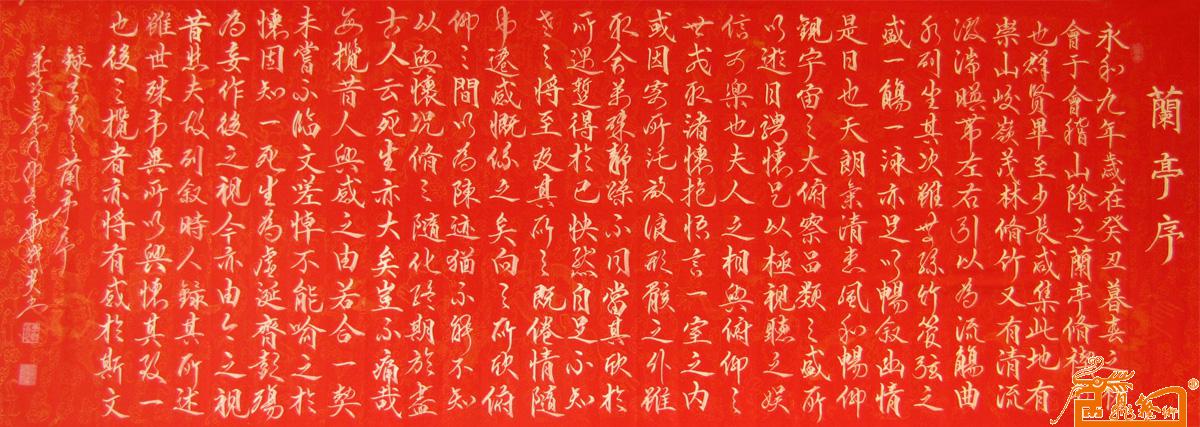 蘭亭序
永和九年歲在癸丑暮春之初
會于會稽山陰之蘭亭脩禊
也群賢畢至少長咸集此地有
崇山峻嶺茂林脩竹又有清流
激湍暎帶左右引以為流觴曲
水列坐其次雖無絲竹管弦之
盛一觴一詠亦足以暢敘幽情
是日也天朗氣清惠風和暢仰
觀宇宙之大俯察品類之盛所
以遊目騁懷足以極視聽之娛
信可樂也夫人之相與俯仰一
世或取諸懷抱悟言一室之內
或因寄所託放浪形骸之外雖
取舍萬殊靜躁不同當其欣於
所遇暫得於己快然自足不知
老之將至及其所之既倦情隨
事遷感慨係之矣向之所欣俯
仰之間以為陳迹猶不能不知
以興懷況脩之隨化終期於盡
古人云死生亦大矣豈不痛哉
每攬昔人興感之由若合一契
未嘗不臨文嗟悼不能喻之於
懷固知一死生為虛誕齊彭殤
為妄作後之視今亦由今之視
昔悲夫故列敘時人錄其所述
雖世殊事異所以興懷其致一
也後之攬者亦將有感於斯文
錄王羲之蘭亭序